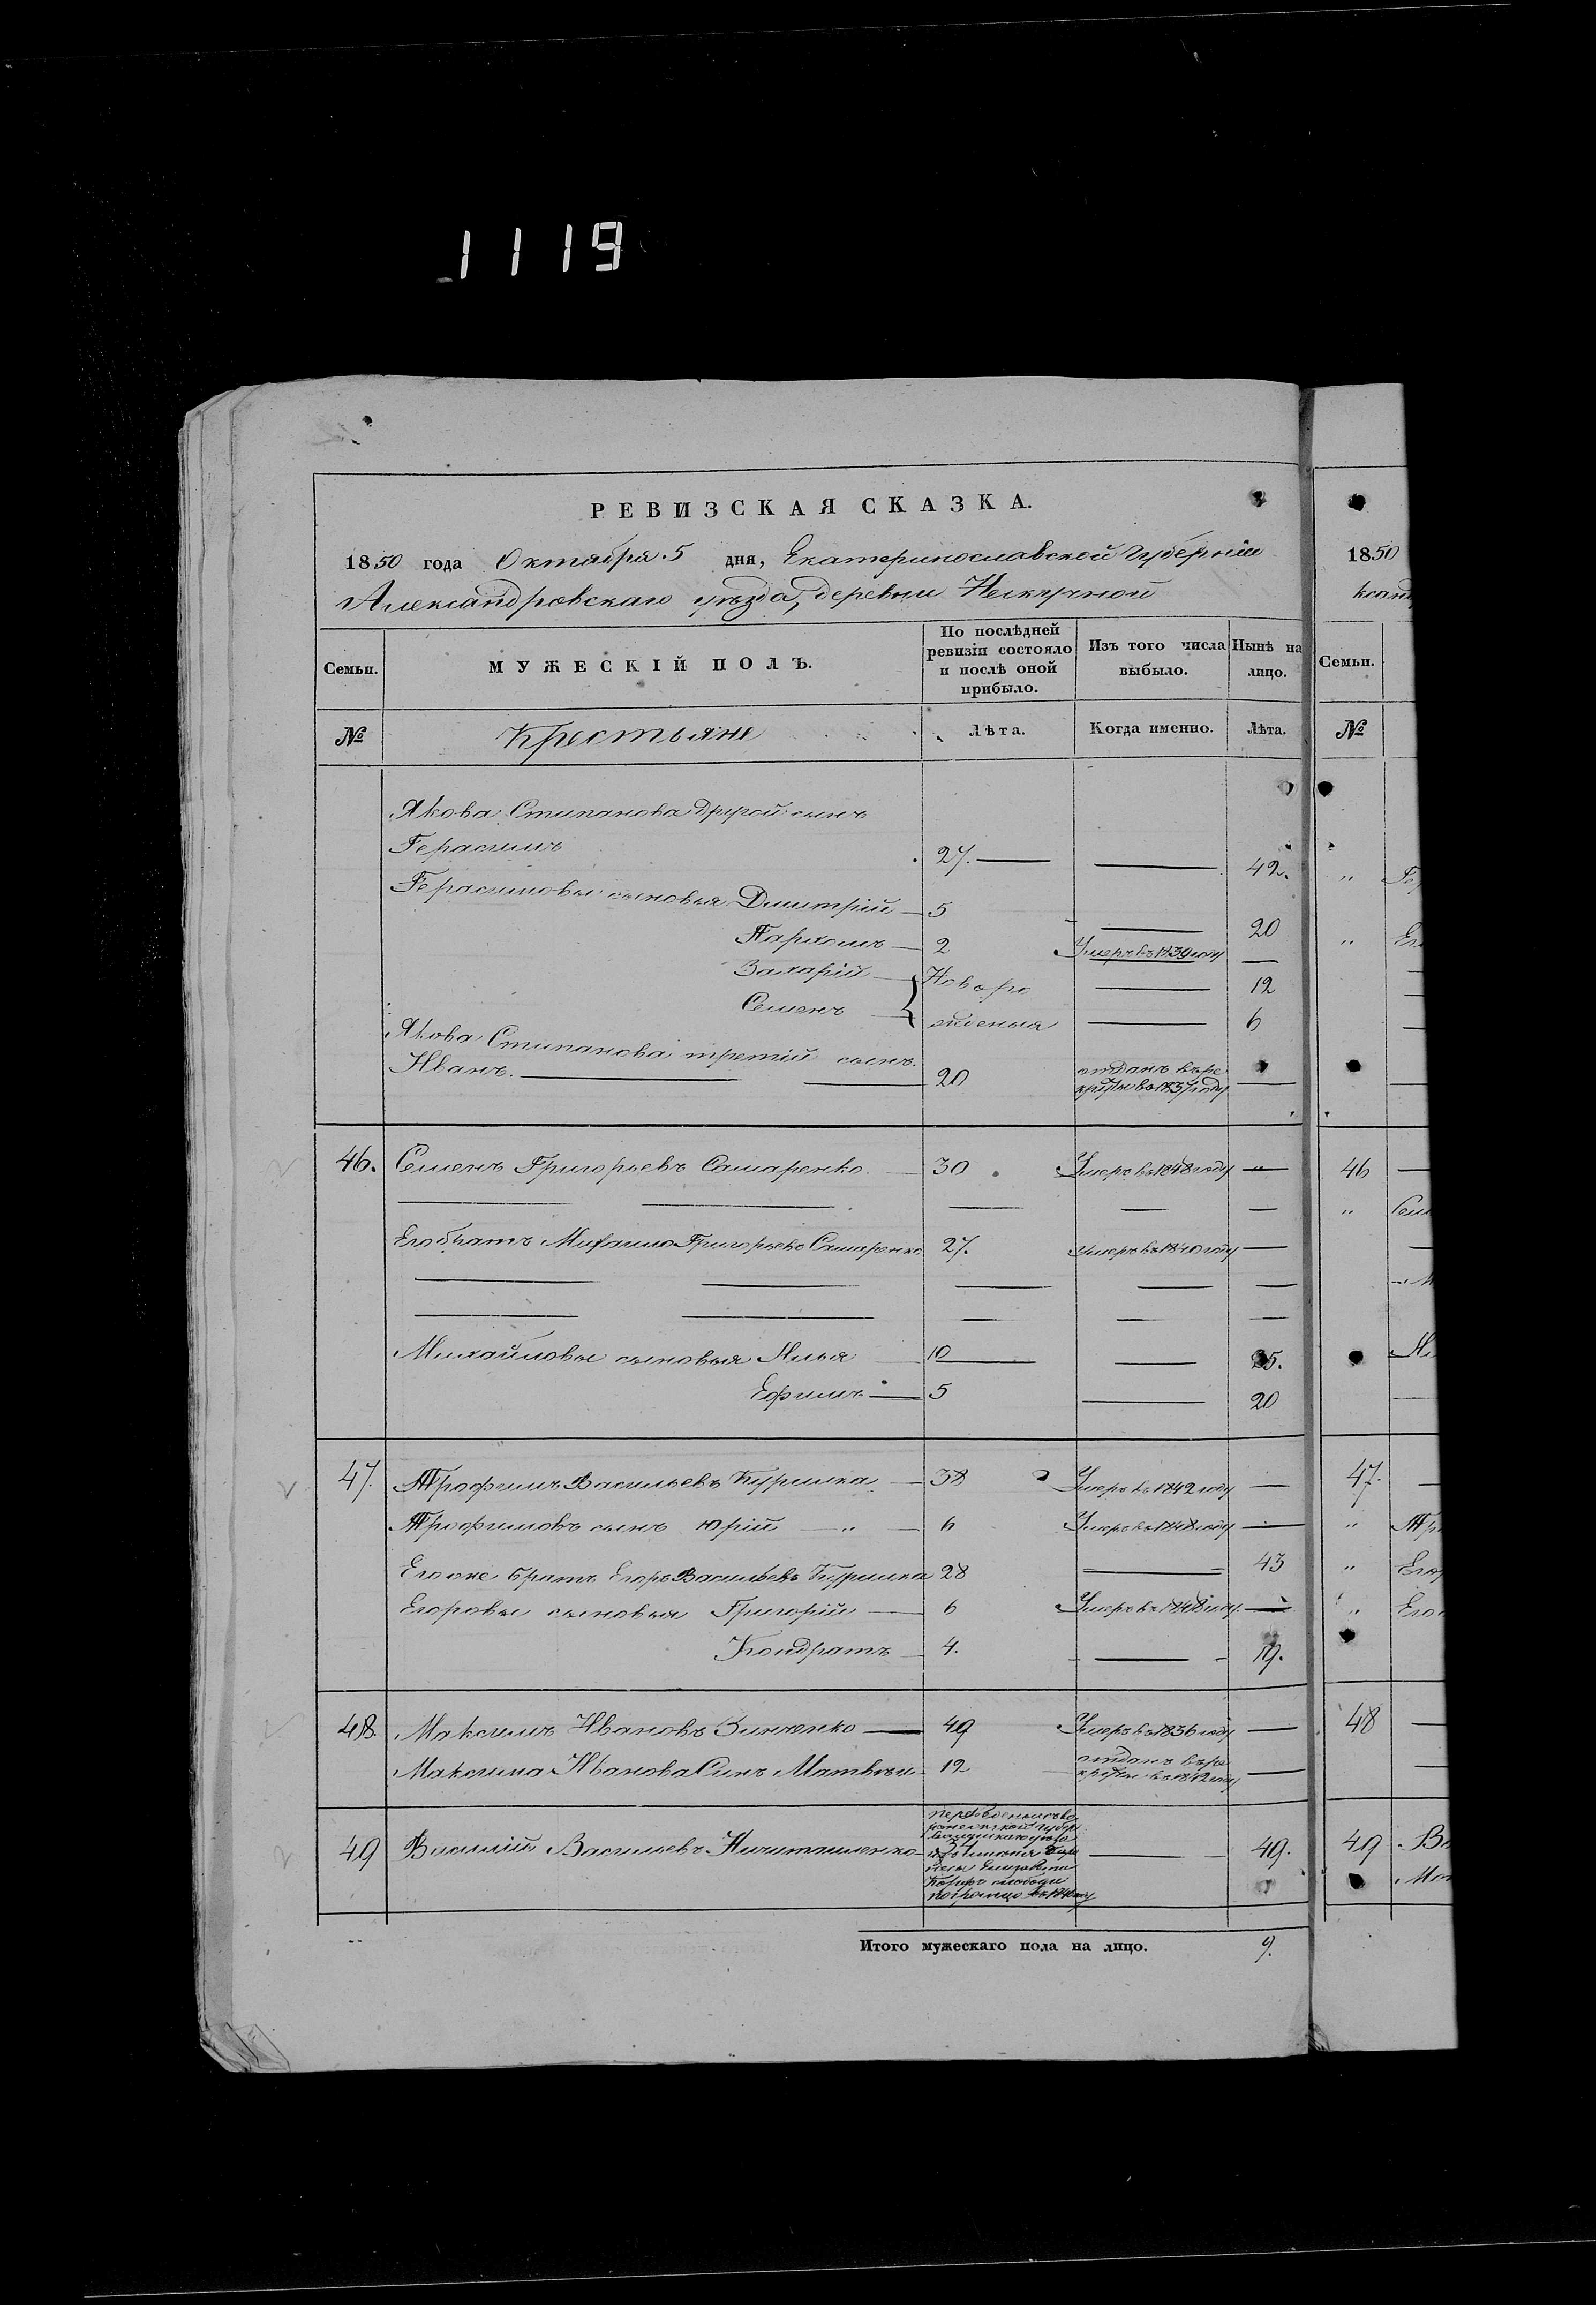 1119
РЕВИЗСКАЯ СКАЗКА.
1850 года Октября 5 дня, Екатеринославской Губерніи
Александровскаго уѣзда, деревни Нескучной
Семьи. МУЖЕСКІЙ ПОЛЪ. По послѣдней ревизіи состояло и послѣ оной прибыло. Изъ того числа выбыло. Нынѣ на лицо.
№ Крестьяне Лѣта. Когда именно. Лѣта.
Якова Стипанова другой сынъ
Герасимъ 27. 42.
Герасимовы сыновья Дмитрій 5 20
Пархомъ 2 Умеръ въ 1839 году
Захарій Новоро 12
Семенъ жденныя 6
Якова Стипанова третій сынъ
Иванъ. 20 отданъ въ ре
круты въ 1837 году
46. Семенъ Григорьевъ Самаренко 30 Умеръ въ 1848 году
Его братъ Михаило Григорьевъ Самаренко 27. умеръ въ 1840 году
Михайловы сыновья Илья 10 25.
Ефимъ 5 20
47. Трофимъ Васильевъ 38 Умеръ въ 1842 году
Трофимовъ сынъ Юрій 6 Умеръ въ 1848 году
Его же братъ Егоръ Васильевъ 28 43
Егоровы сыновья Григорій 6 Умеръ въ 1848 году
Кондратъ 4. 19.
48. Максимъ Ивановъ Зинченко 49 Умеръ въ 1836 году
Максима Иванова Сынъ Матвѣй 12 отданъ въ ре
круты въ 1842 году
49 Василій Васильевъ 49.
Итого мужескаго пола на лицо. 9.
1850
Семьи.
№
46
47.
48
49